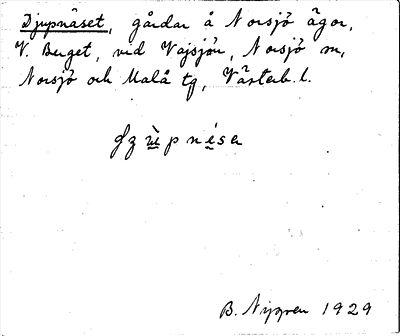 Djupnäset, gårdar å Norsjö ägor,
V. Berget, vid Vajsjön, Norsjö sn,
Norsjö och Malå tg, Västerb. l.
B. Nygren 1929